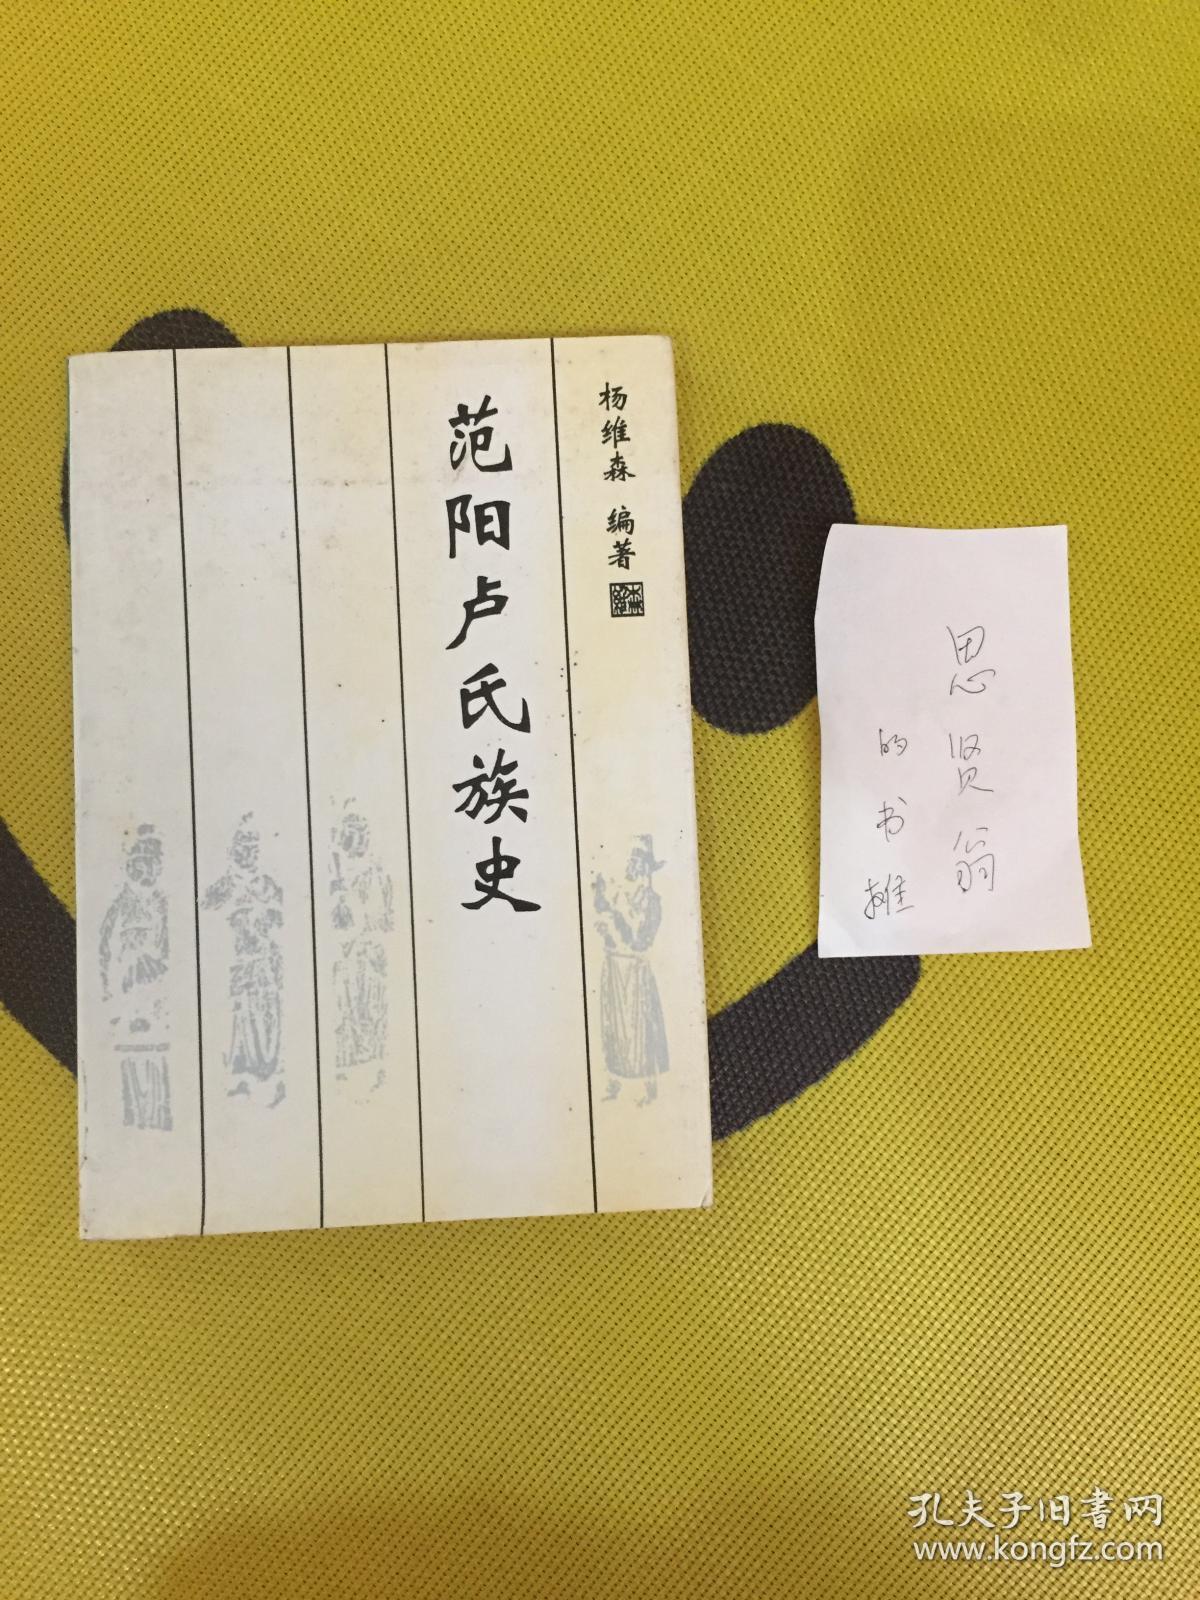 杨维森 编著
范阳卢氏族史
思贤翁
的书摊
孔夫子旧書网
www.kongfz.com